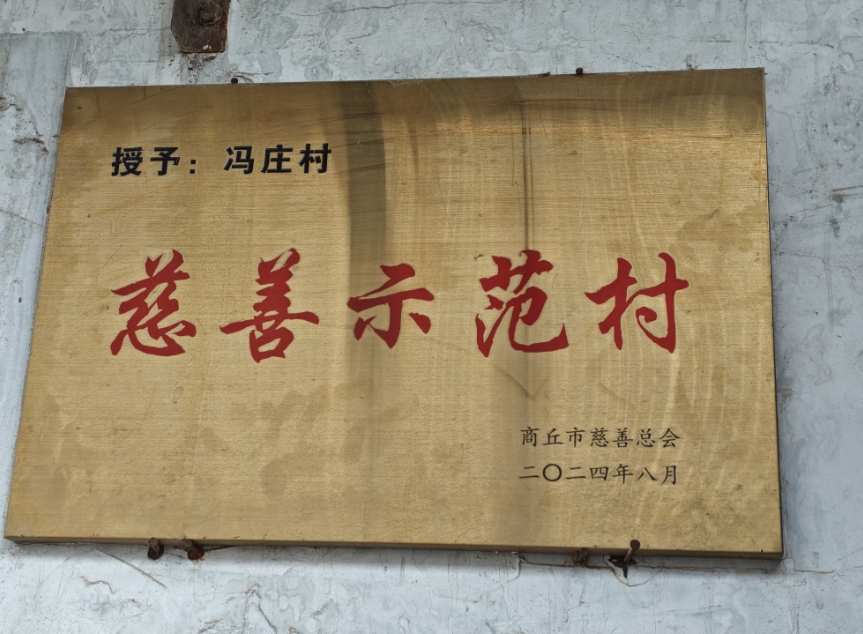 授予：冯庄村
慈善示范村
商丘市慈善总会
二〇二四年八月